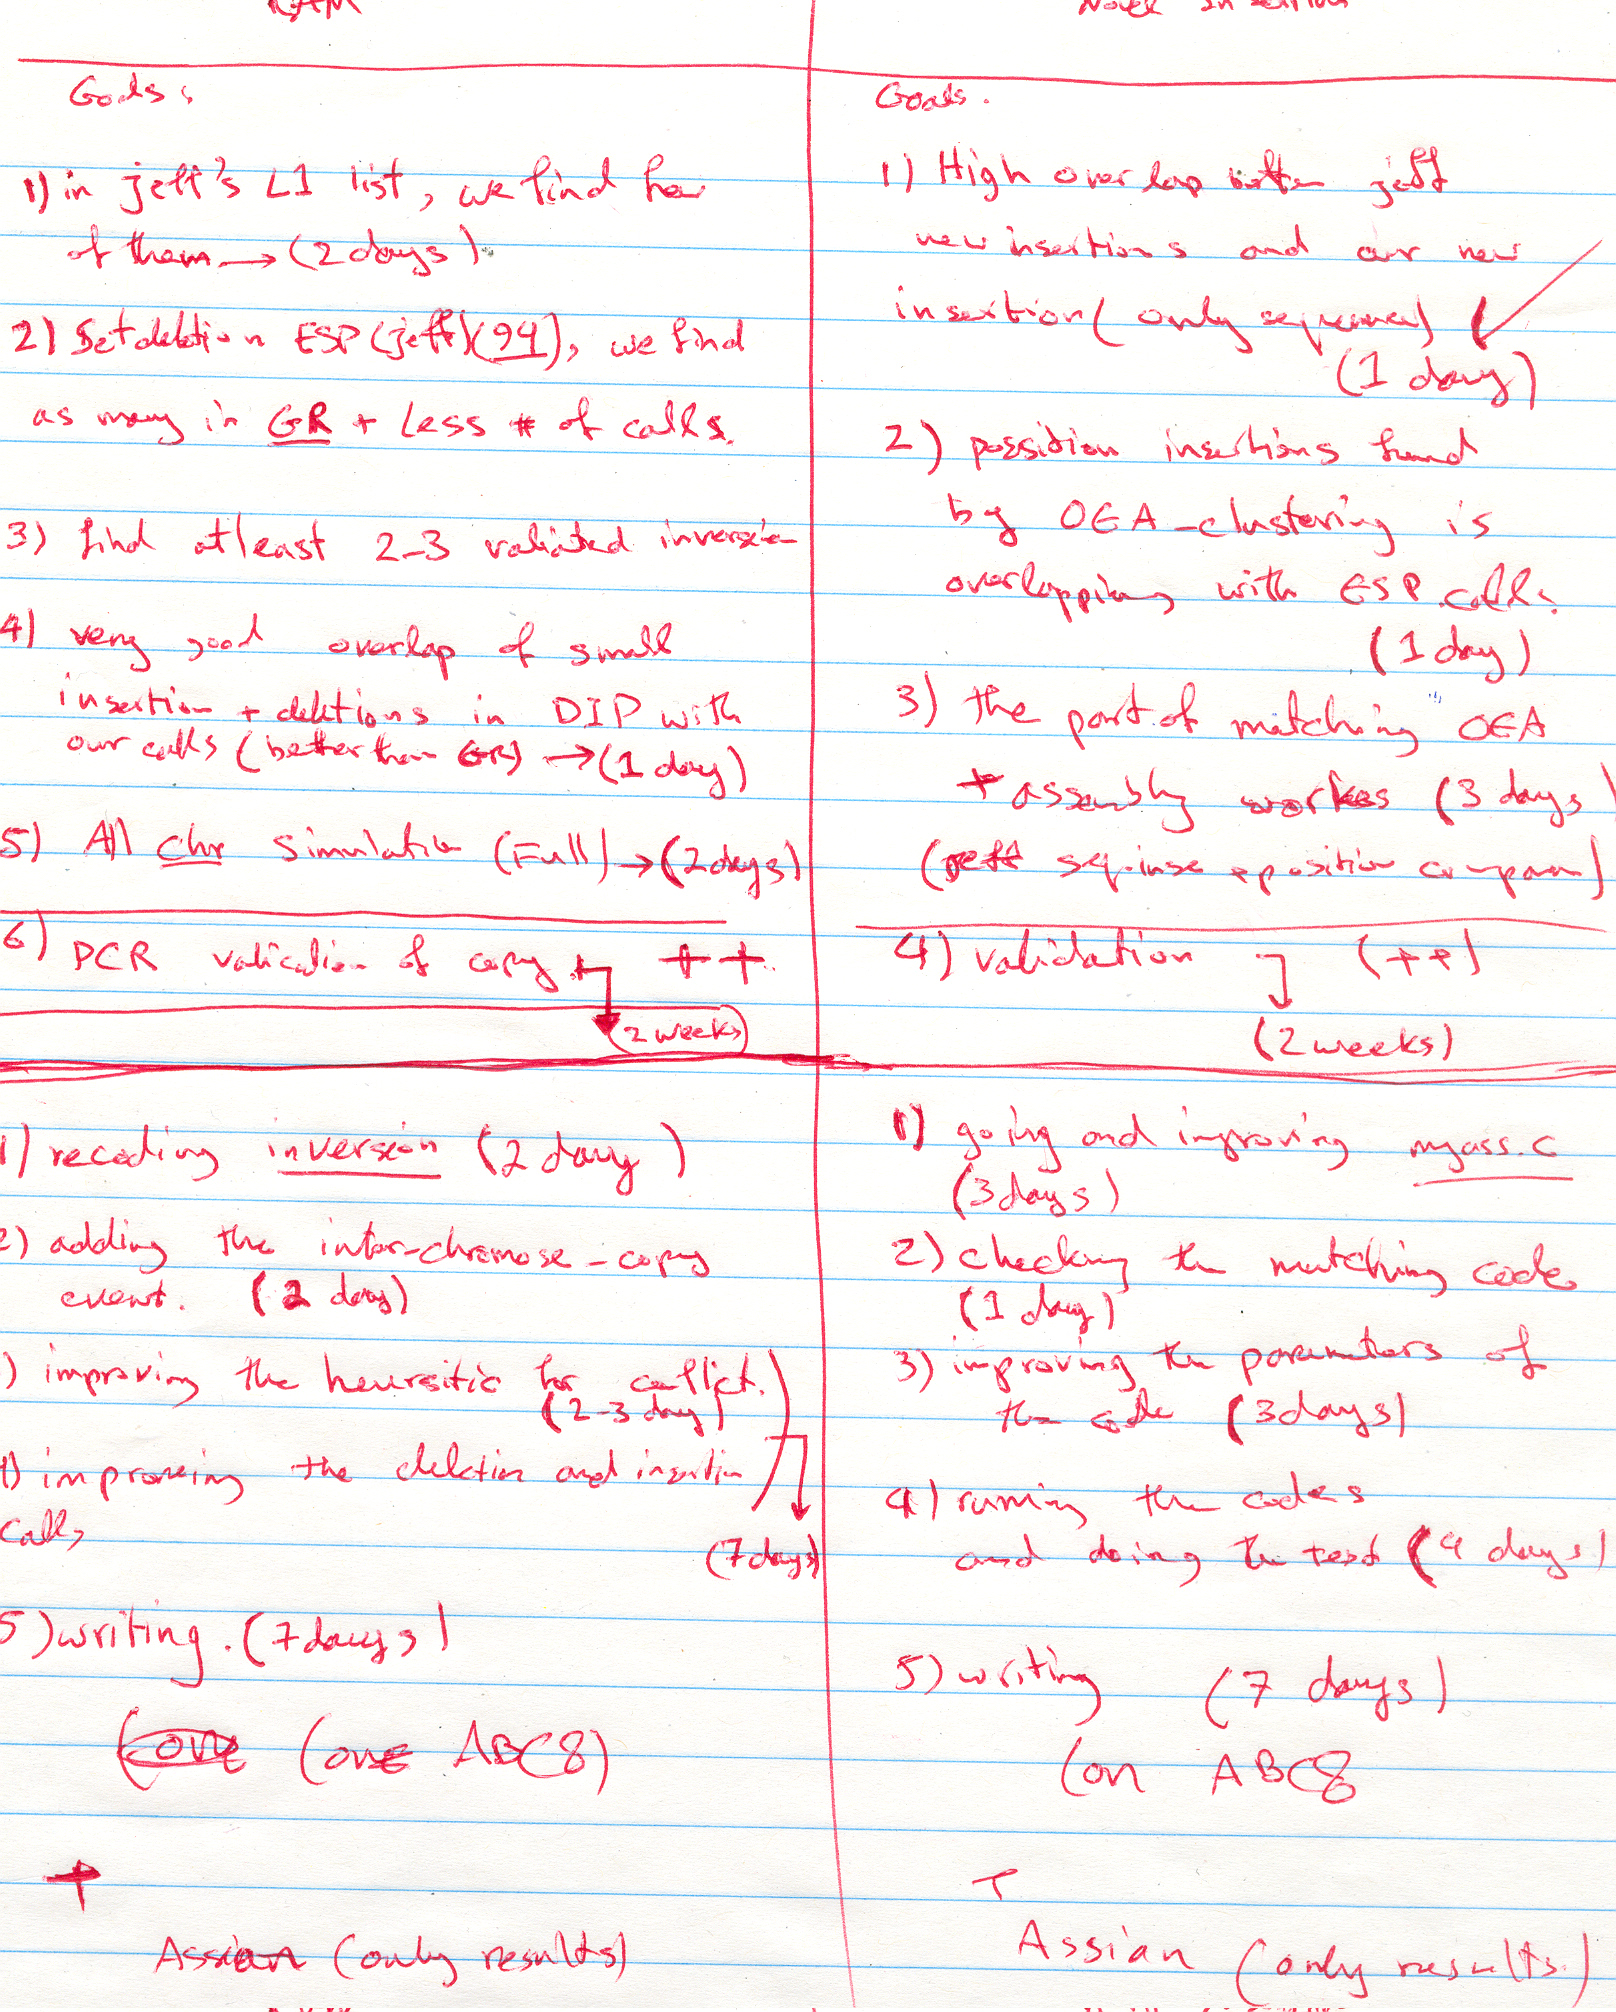 Novel Insertions
Goals:
1) in jeff's L1 list, we find few
of them → (2 days).
2) Set deletion ESP (jeff) (94), we find
as many in GR + Less # of calls.
3) find atleast 2-3 valiated inversion
4) very good overlap of small
insertion + deletions in DIP with
our calls (better than GR) → (1 day)
5) All Chr Simulation (Full) → (2 days)
6) PCR validation of copy ++
(2 weeks)
1) recoding inversion (2 day)
2) adding the inter-chromose-copy
event. (2 day)
) improving the heursitic for conflict.
(2-3 day)
4) improving the deletion and insertion
calls
(7 days)
5) writing. (7 days)
(one ABC8)
+
Assian (only results)
Goals.
1) High overlap jeff
new insertions and our new
insertion (only sequence) ✓
(1 day)
2) possition insertions found
by OEA-clustering is
overlapping with ESP calls.
(1 day)
3) the part of matching OEA
+ assembly workes (3 days)
(jeff seq.inse + position compason)
4) validation (++)
(2 weeks)
1) going and improving myass.c
(3 days)
2) checking the matching code
(1 day)
3) improving the parameters of
the code (3 days)
4) runing the codes
and doing the test (4 days)
5) writing (7 days)
(on ABC8
+
Assian (only results.)